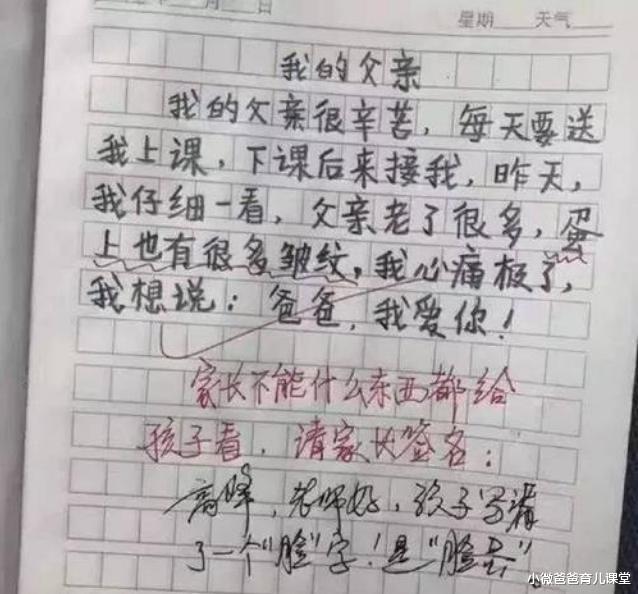 月 日 星期 天气
我的父亲
我的父亲很辛苦，每天要送
我上课，下课后来接我，昨天，
我仔细一看，父亲老了很多，蛋
上也有很多皱纹，我心痛极了，
我想说：爸爸，我爱你！
家长不能什么东西都给
孩子看，请家长签名：
高峰，老师好，孩子写漏
了一个“脸”字！是“脸蛋”。
小微爸爸育儿课堂